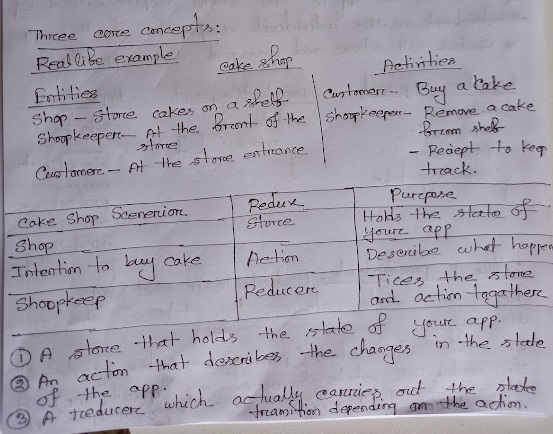 Three core concepts:
Real life example
cake shop
Entities
Shop - Store cakes on a shelf
Shopkeeper- At the front of the
store
Customer - At the store entrance
Activities
Customer - Buy a Cake
Shopkeeper- Remove a cake
from shelf
- Reciept to keep
track.
Cake Shop Scenerior Redux Purpose
Shop Store Holds the state of
your app
Intention to buy cake Action Describe what happen
Shopkeep Reducer Tices the store
and action togather
① A store that holds the state of your app.
② An acton that describes the changes in the state
of the app.
③ A reducer which actually carries out the state
tramition depending on the action.